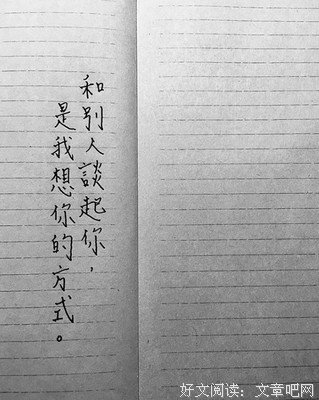 和別人談起你，
是我想你的方式。
好文阅读：文章吧网